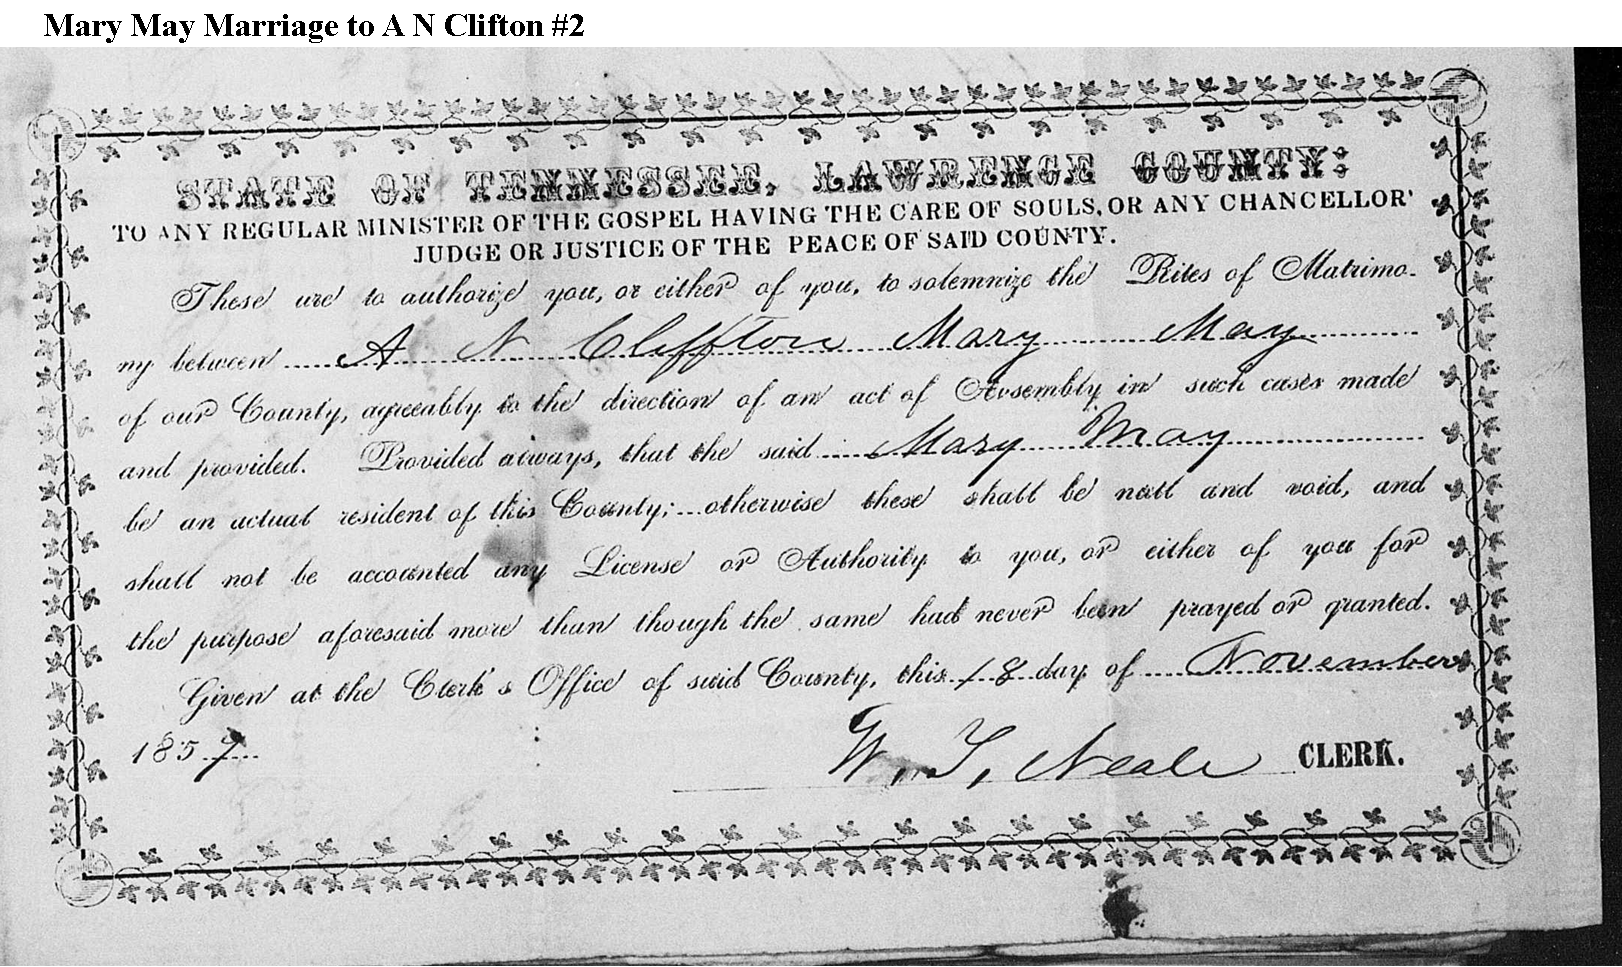 Mary May Marriage to A N Clifton #2
STATE OF TENNESSEE, LAWRENCE COUNTY:
TO ANY REGULAR MINISTER OF THE GOSPEL HAVING THE CARE OF SOULS, OR ANY CHANCELLOR'
JUDGE OR JUSTICE OF THE PEACE OF SAID COUNTY.
These are to authorize you, or either of you, to solemnize the Rites of Matrimo-
ny between A N Cliffton Mary May
of our County, agreeably to the direction of an act of Assembly in such cases made
and provided. Provided always, that the said Mary May
be an actual resident of this County; otherwise these shall be null and void, and
shall not be accounted any License or Authority to you, or either of you for
the purpose aforesaid more than though the same had never been prayed or granted.
Given at the Clerk's Office of said County, this 18 day of November
1857
W. T. Neale CLERK.